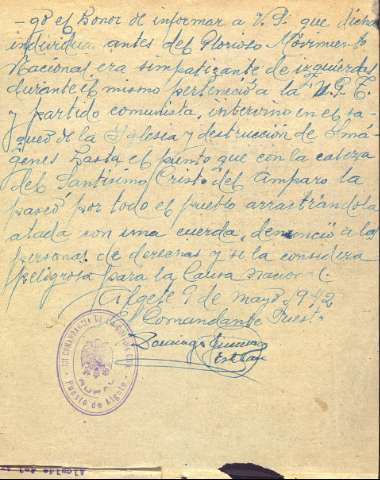 -go el honor de informar a V.S. que dicho
individuo, antes del Glorioso Movimiento
Nacional era simpatizante de izquierdas
durante el mismo perteneció a la U.G.T.
y partido comunista, interbino en el sa-
queo de la Iglesia y destrucción de Imá-
genes hasta el punto que con la cabeza
del Santisimo Cristo del Amparo la
paseó por todo el pueblo arrastrándola
atada con una cuerda, denunció a las
personas de derechas y se la considera
peligrosa para la Causa Nacional.
Algete 9 de mayo 942
El Comandante Puesto
Domingo
Puesto de Algete